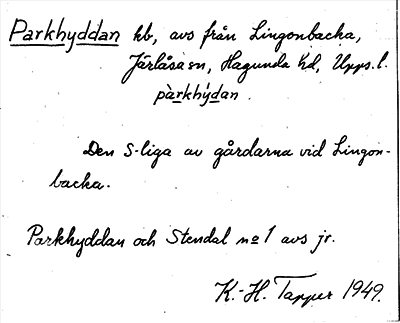 Parkhyddan hb, avs från Lingonbacka,
Järlåsa sn, Hagunda hd, Upps.l.
pàrkhýdan.
Den S-liga av gårdarna vid Lingon-
backa.
Parkhyddan och Stendal no 1 avs jr.
K.-H. Tapper 1949.